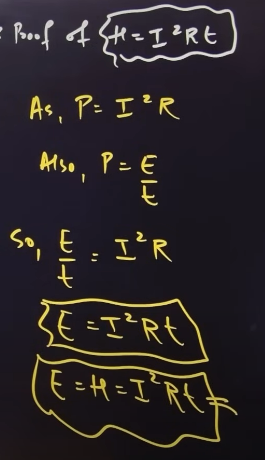 : Proof of H = I²Rt
As, P = I²R
Also, P = E/t
So, E/t = I²R
E = I²Rt
E = H = I²Rt